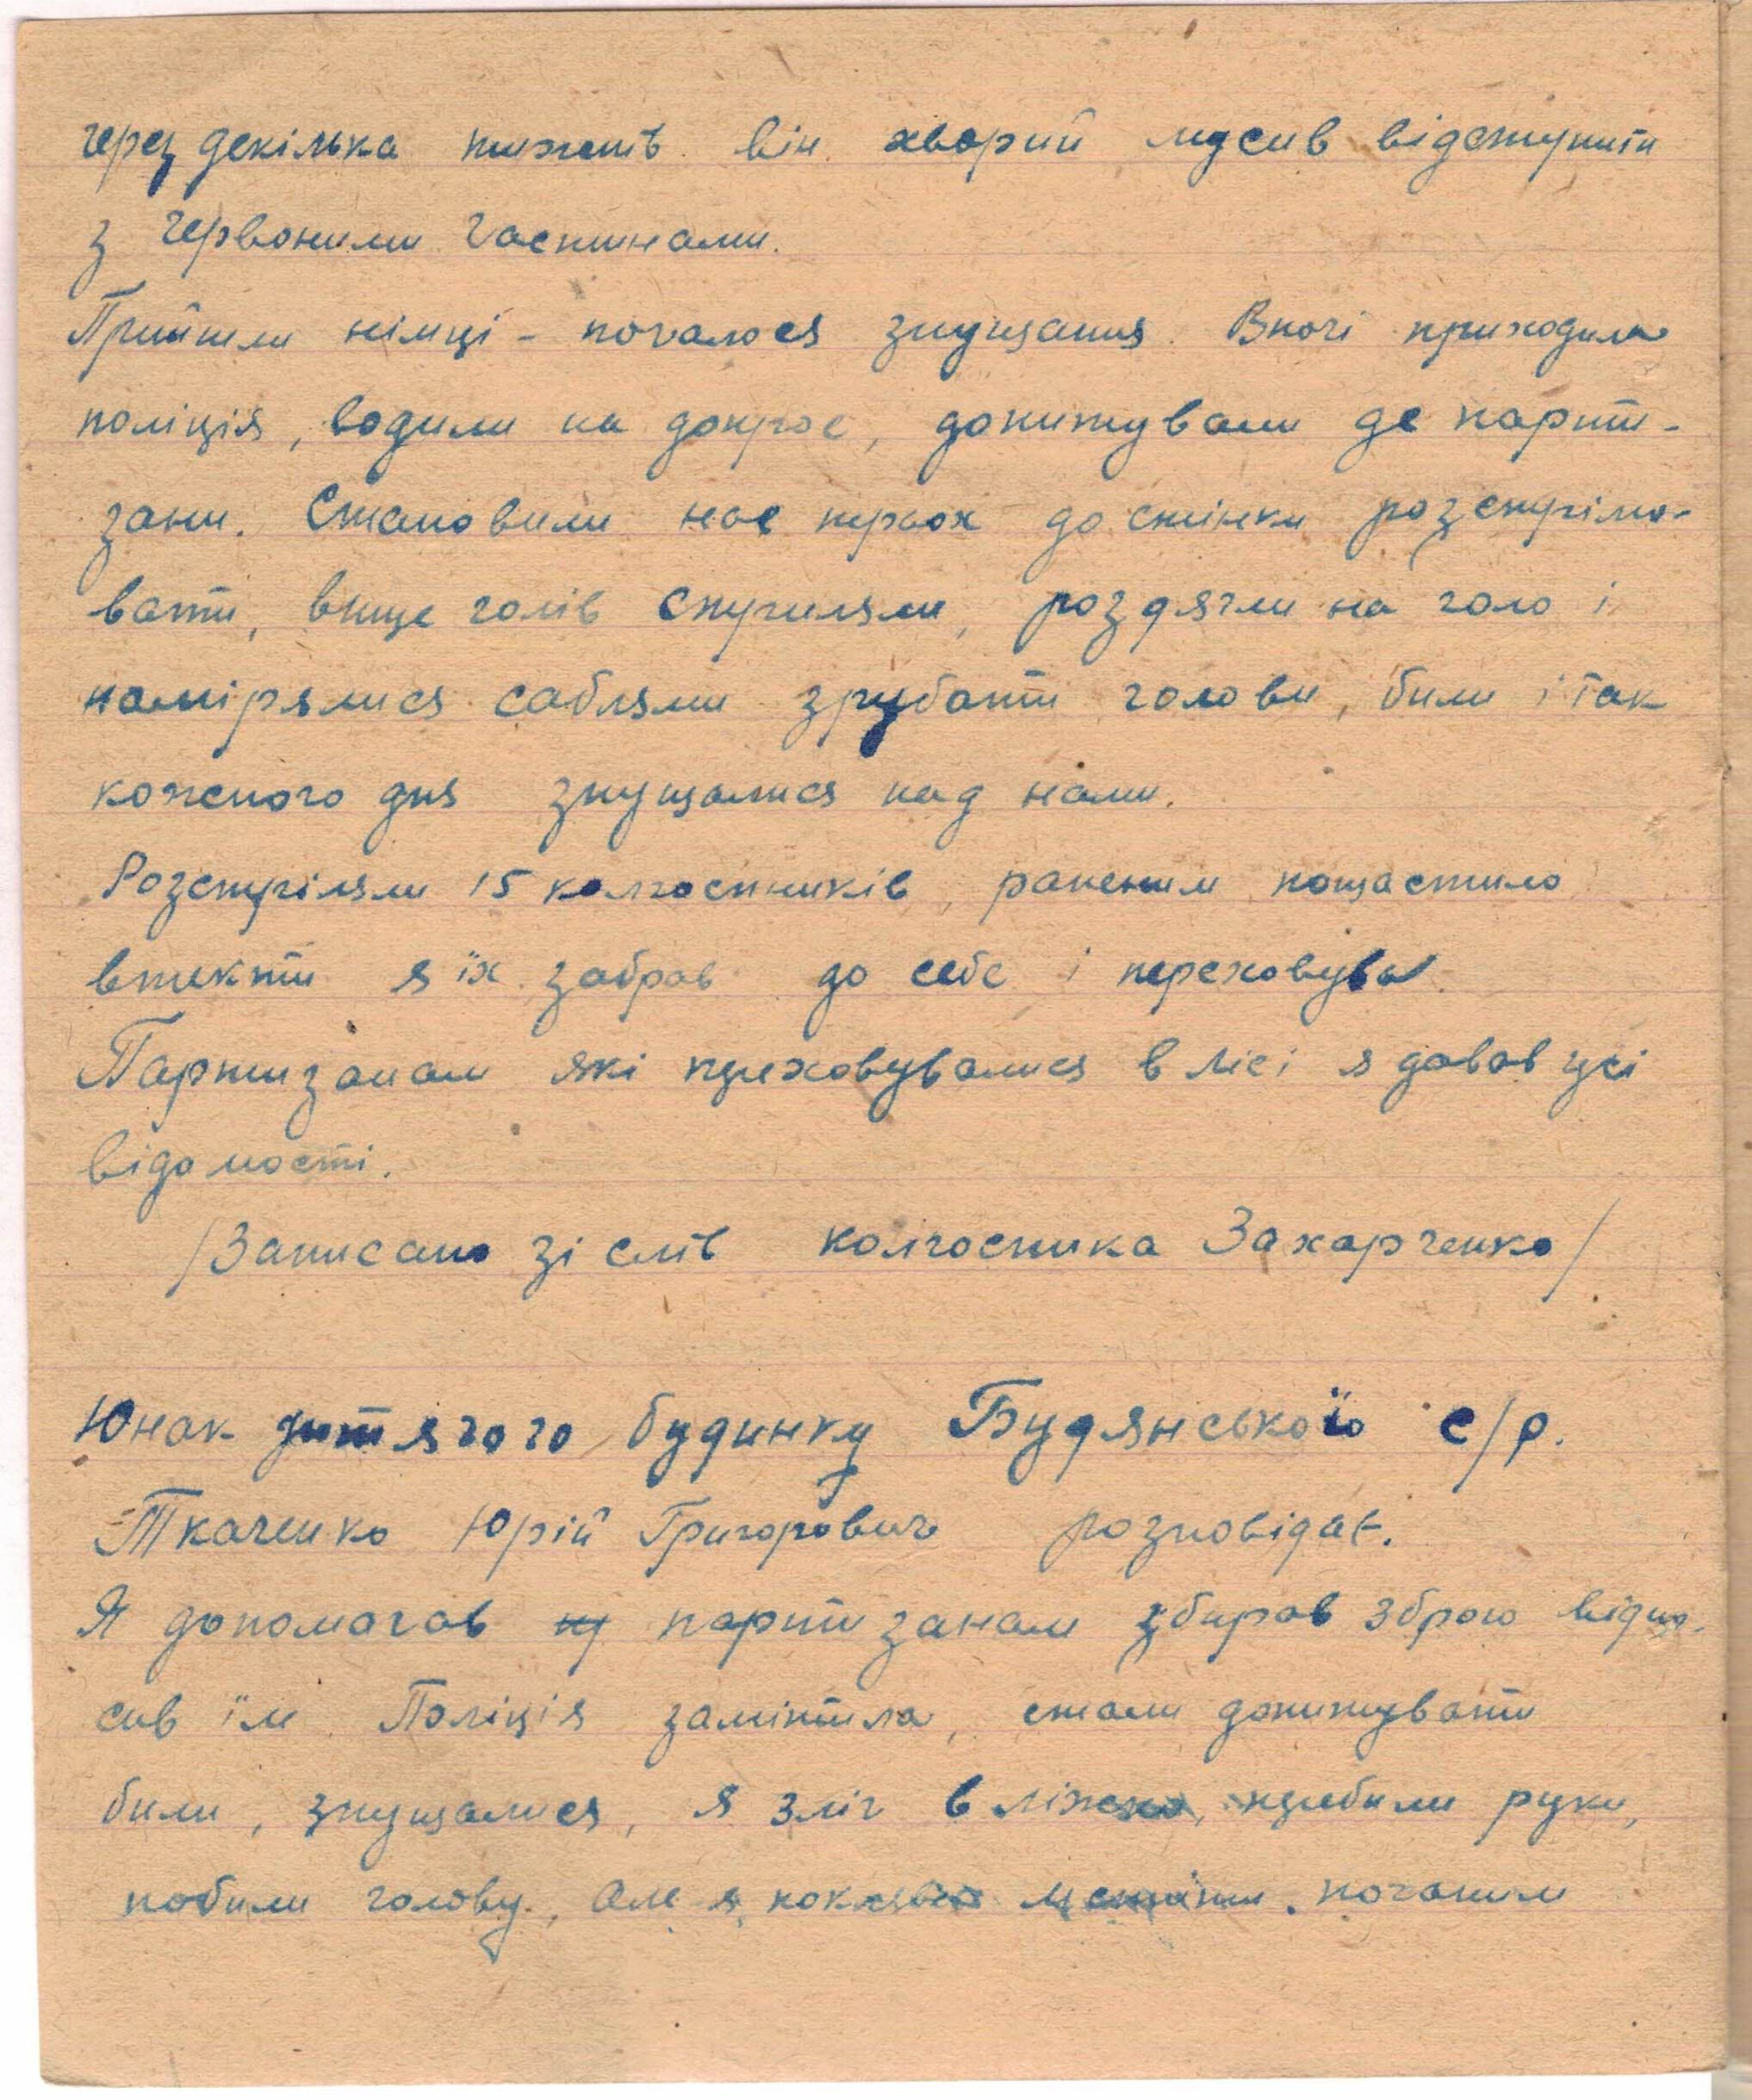 через декілька тижнів він хворий мусив відступити
з червоними частинами.
Прийшли німці - почалося знущання. Вночі приходила
поліція, водили на допрос, допитували де парти-
зани. Становили нас трьох до стінки розстріля-
вати, вище голів стріляли, роздягли на голо і
намірялися саблями зрубати голови, били і так
кожного дня знущалися над нами.
Розстріляли 15 колгоспників, раненим пощастило
втекти я їх забрав до себе і переховував.
Партизанам які переховувалися в лісі я давав усі
відомості.
/Записано зі слів колгоспника Захарченко/
Юнак дитячого будинку Будянської с/р.
Ткаченко Юрій Григорович розповідає.
Я допомагав партизанам збирав зброю відно-
сив їм. Поліція замітила, стали допитувати
били, знущалися, я зліг в ліжко, перебили руки,
побили голову, але я поклявся мстити. поганим